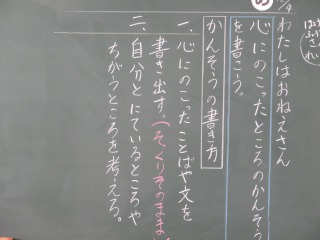 わたしはおねえさん
心にのこったところのかんそう
を書こう。
かんそうの書き方
一、心にのこったことばや文を
書き出す。(そっくりそのまま
二、自分とにているところや
ちがうところを考える。